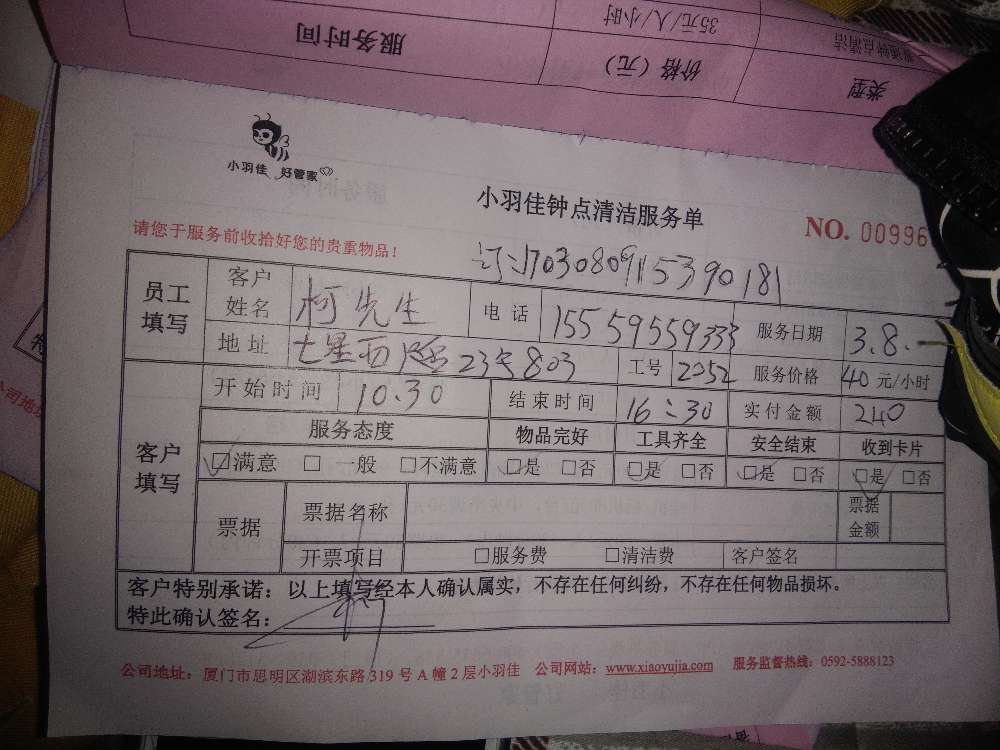 服务时间
价格（元）
类型
35元/人/小时
普通钟点清洁
小羽佳 好管家
小羽佳钟点清洁服务单
NO. 00996
请您于服务前收拾好您的贵重物品！
订:1703080915390181
员工填写
客户姓名 柯先生 电话 15559559333 服务日期 3.8.
地址 七星西路23号803 工号 2252 服务价格 40元/小时
客户填写
开始时间 10.30 结束时间 16:30 实付金额 240
服务态度 物品完好 工具齐全 安全结束 收到卡片
☑满意 □一般 □不满意 ☑是 □否 ☑是 □否 ☑是 □否 ☑是 □否
票据 票据名称 票据金额
开票项目 □服务费 □清洁费 客户签名
客户特别承诺：以上填写经本人确认属实，不存在任何纠纷，不存在任何物品损坏。
特此确认签名：
公司地址：厦门市思明区湖滨东路319号A幢2层小羽佳 公司网站：www.xiaoyujia.com 服务监督热线：0592-5888123